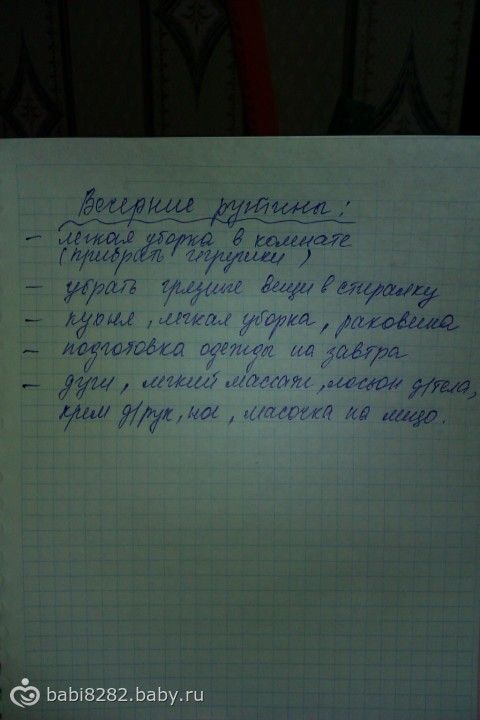 Вечерние рутины:
– легкая уборка в комнате
(прибрать игрушки)
– убрать грязные вещи в стиралку
– кухня, легкая уборка, раковина
– подготовка одежды на завтра
– душ, легкий массаж, лосьон д/тела,
крем д/рук, ног, масочка на лицо.
babi8282.baby.ru